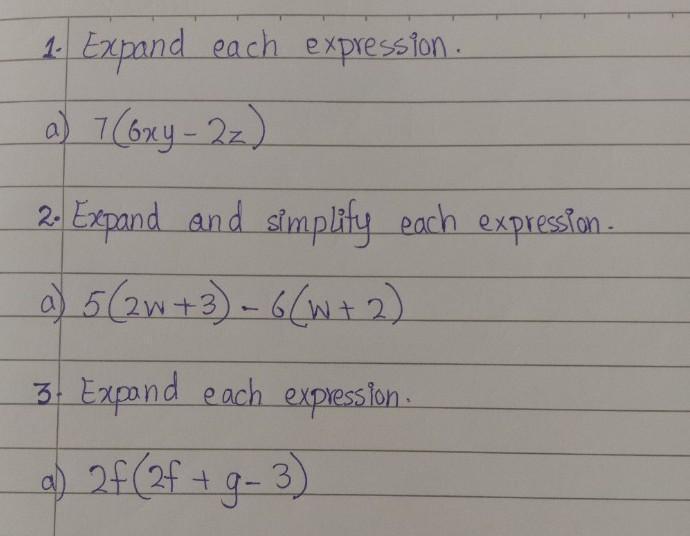 1. Expand each expression.
a) 7(6xy - 2z)
2. Expand and simplify each expression.
a) 5(2w + 3) - 6(w + 2)
3. Expand each expression.
a) 2f(2f + g - 3)